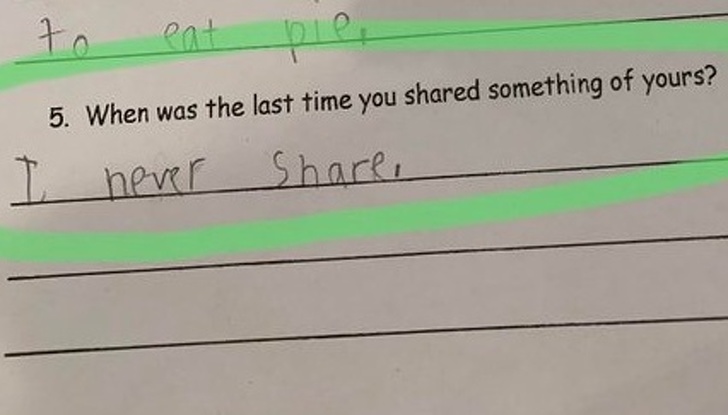 to eat pie.
5. When was the last time you shared something of yours?
I never share.